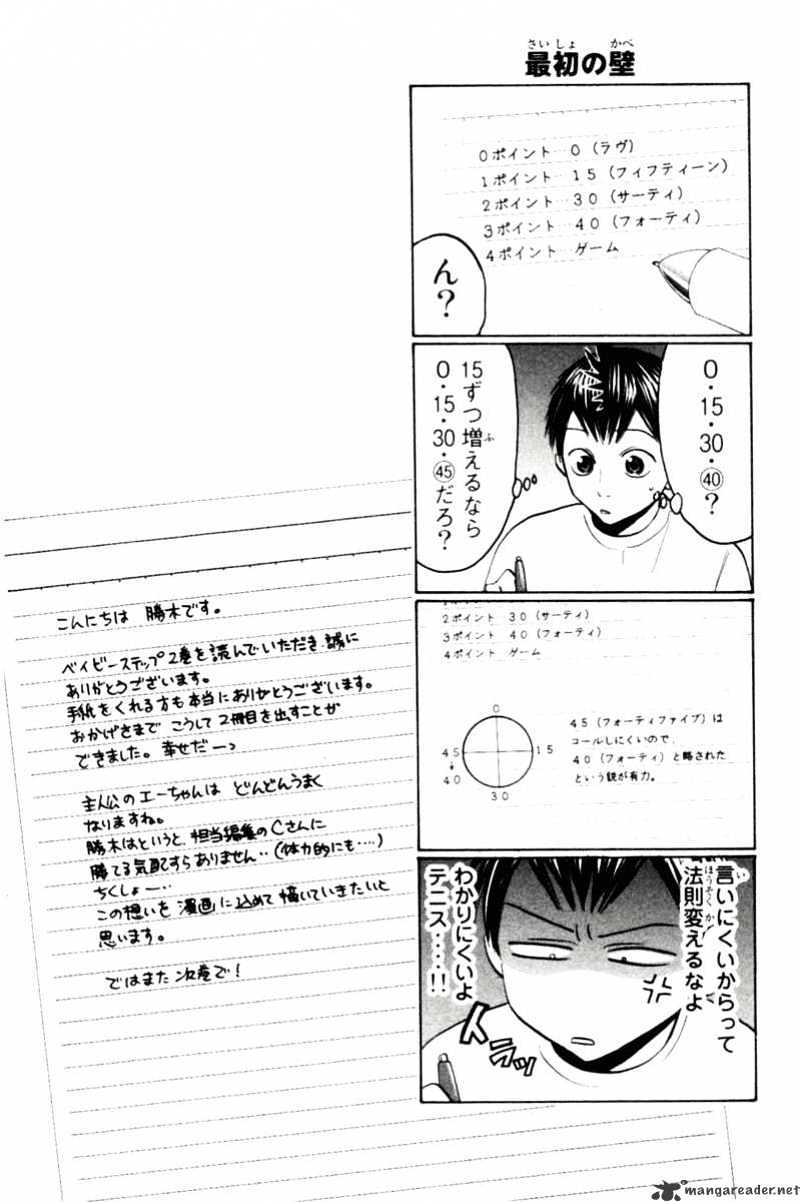 最初の壁
さいしょ かべ
0ポイント…0(ラヴ)
1ポイント…15(フィフティーン)
2ポイント…30(サーティ)
3ポイント…40(フォーティ)
4ポイント ゲーム
ん?
0・15・30・㊵?
15ずつ増えるなら
ふ
0・15・30・㊺だろ?
2ポイント 30(サーティ)
3ポイント 40(フォーティ)
4ポイント ゲーム
0
15
30
45
40
45(フォーティファイブ)は
コールしにくいので、
40(フォーティ)と略された
という説が有力。
言いにくいからって
い
法則変えるなよ
ほうそくか
わかりにくいよ
テニス‥‥!!
イラッ
こんにちは 勝木です。
ベイビーステップ2巻を読んでいただき 誠に
ありがとうございます。
手紙をくれる方も本当にありがとうございます。
おかげさまで こうして2冊目を出すことが
できました。幸せだーっ
主人公のエーちゃんは どんどんうまく
なりますね。
勝木はというと、担当編集のCさんに
勝てる気配すらありません‥(体力的にも‥‥)
ちくしょー‥
この想いを 漫画に込めて 描いていきたいと
思います。
ではまた次巻で!
mangareader.net